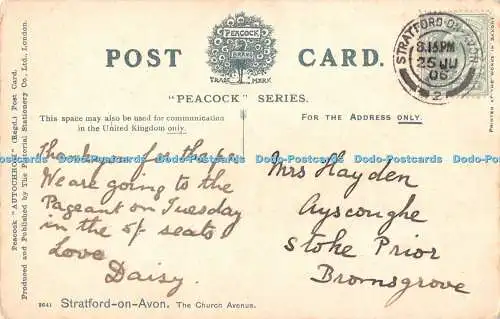 PEACOCK
BRAND
TRADE MARK
POST CARD.
"PEACOCK" SERIES.
This space may also be used for communication
in the United Kingdom only.
FOR THE ADDRESS ONLY.
STRATFORD-ON-AVON
8.15PM
25 JU
06
2
Thanking you for the
We are going to the
Pageant on Tuesday
in the 5/ seats
Love
Daisy.
Mrs Hayden
Ayscoughe
Stoke Prior
Bromsgrove
Peacock "AUTOCHROM" (Regd.) Post Card.
Produced and Published by The Pictorial Stationery Co., Ltd., London.
Printed at the Works in Saxony
Stratford-on-Avon. The Church Avenue.
Dodo-Postcards Dodo-Postcards Dodo-Postcards Dodo-Postcards Dodo-Postcards